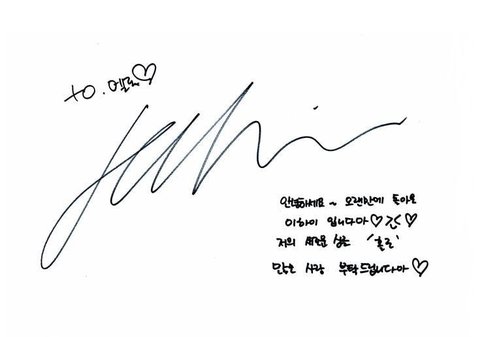 TO. 멜론♡
안녕하세요~ 오랜만에 돌아온
이하이 입니다아♡ㅈ♡
저의 새로운 싱글 '홀로'
많은 사랑 부탁드립니다아♡